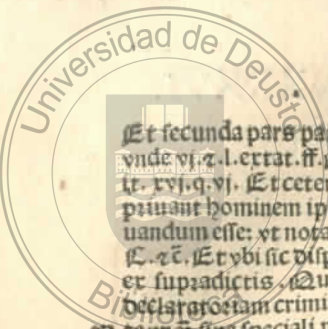 Universidad de Deusto
Et secunda pars pa
vnde vj.⁊.l.extat.ff.p
it. xvj.q.vj. Et cete
priuant hominem ip
uandum esse: vt nota
C.⁊c̄. Et vbi sic disp
ex supradictis. Qu
declaratoriam crimi
speciali